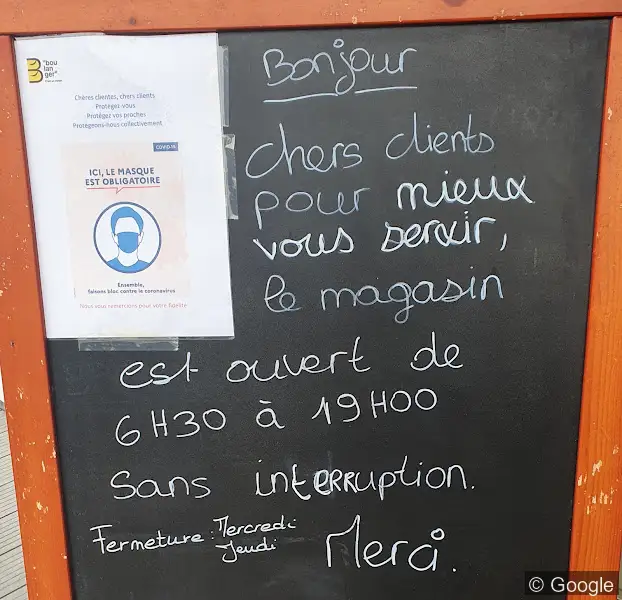 "bou
lan
ger"
Chères clientes, chers clients
Protégez-vous
Protégez vos proches
Protégeons-nous collectivement
COVID-19
ICI, LE MASQUE
EST OBLIGATOIRE
Ensemble,
faisons bloc contre le coronavirus
Nous vous remercions pour votre fidélité
Bonjour
chers clients
pour mieux
vous servir,
le magasin
est ouvert de
6H30 à 19H00
sans interruption.
Fermeture: Mercredi
Jeudi
Merci.
© Google